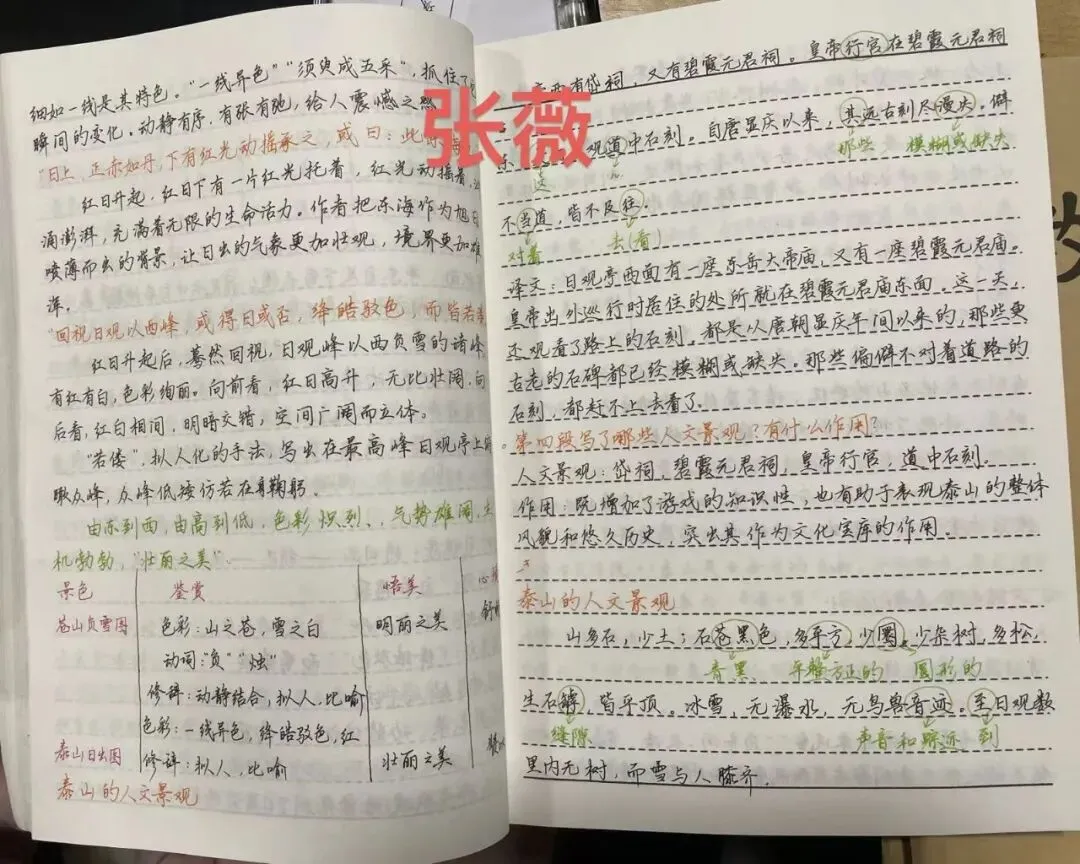 细如一线是其特色。"一线异色""须臾成五采",抓住了
瞬间的变化。动静有序,有张有弛,给人震憾之感
"日上,正赤如丹,下有红光动摇承之,或曰:此东海
红日升起,红日下有一片红光托着,红光动摇着,
涌澎湃,充满着无限的生命活力。作者把东海作为旭日
喷薄而出的背景,让日出的气象更加壮观,境界更加雄
浑。
"回视日观以西峰,或得日或否,绛皓驳色,而皆若
红日升起后,蓦然回视,日观峰以西负雪的诸峰
有红有白,色彩绚丽。向前看,红日高升,无比壮阔,向
后看,红白相间,明暗交错,空间广阔而立体。
"若偻",拟人化的手法,写出在最高峰日观亭上俯
瞰众峰,众峰低矮仿若在身鞠躬。
由东到西,由高到低,色彩炽烈、,气势雄阔,生
机勃勃,"壮丽之美".
景色 鉴赏 悟美 心
苍山负雪图 色彩:山之苍,雪之白 明丽之美
动词:"负""烛"
修辞:动静结合,拟人,比喻
色彩:一线异色,绛皓驳色,红
泰山日出图 修辞:拟人,比喻 壮丽之美
泰山的人文景观
张薇
亭西有岱祠,又有碧霞元君祠。皇帝行宫在碧霞元君祠
东 观道中石刻。自唐显庆以来,其远古刻尽漫失。僻
这 那些 模糊或缺失
不当道,皆不及往。
对着 去(看)
译文:日观亭西面有一座东岳大帝庙,又有一座碧霞元君庙。
皇帝出外巡行时居住的处所就在碧霞元君庙东面。这一天,
还观看了路上的石刻,都是从唐朝显庆年间以来的,那些更
古老的石碑都已经模糊或缺失。那些偏僻不对着道路的
石刻,都赶不上去看了.
。第四段写了哪些人文景观?有什么作用?
人文景观:岱祠,碧霞元君祠,皇帝行宫,道中石刻.
作用:既增加了游戏的知识性,也有助于表现泰山的整体
风貌和悠久历史,突出其作为文化宝库的作用.
泰山的人文景观
山多石,少土;石苍黑色,多平方,少圜。少杂树,多松,
青黑 平整方正的 圆形的
生石罅,皆平顶。冰雪,无瀑水,无鸟兽音迹。至日观数
缝隙 声音和踪迹 到
里内无树,而雪与人膝齐.